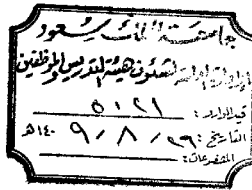 جامعة الملك سعود
لشئون هيئة التدريس والموظفين
قيد الوارد : ٥١٢١
التاريخ : ٢٦ / ٨ / ١٤٠٩هـ
المشفوعات :